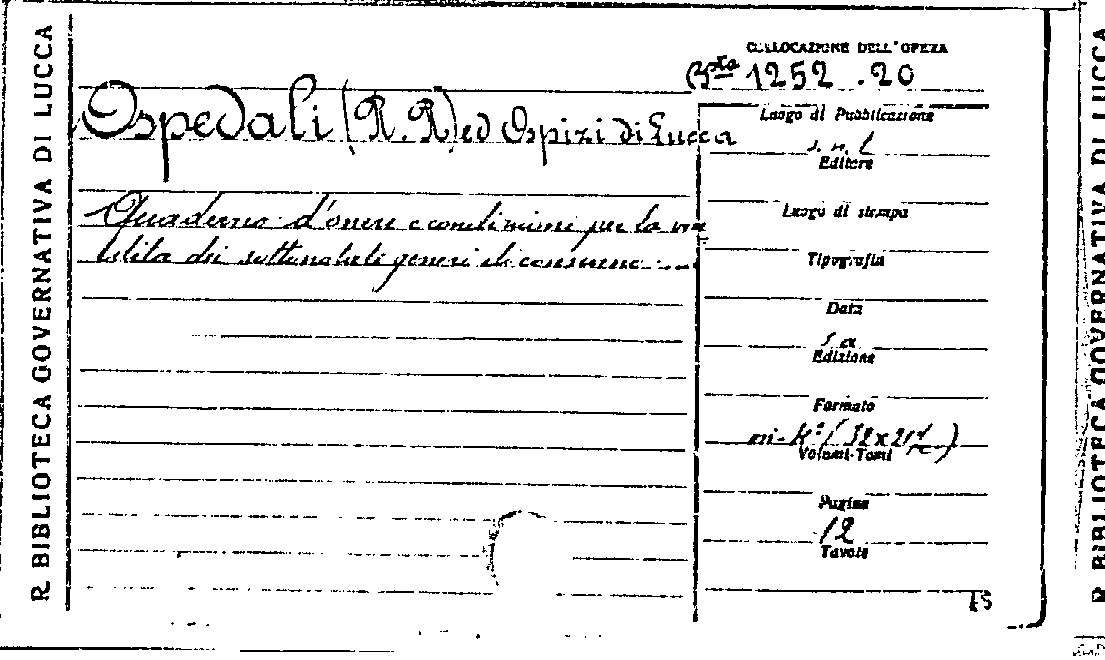 R. BIBLIOTECA GOVERNATIVA DI LUCCA
COLLOCAZIONE DELL'OPERA
Bta 1252.20
Ospedali (R.R.) ed Ospizi di Lucca
Quaderno d'onere e condizioni per la
dei sottonotati generi di consumo
Luogo di Pubblicazione
s. n. t.
Editore
Luogo di stampa
Tipografia
Data
Edizione
Formato
(32x21
Volumi-Tomi
Pagine
12
Tavole
R. BIBLIOTECA GOVERNATIVA DI LUCCA